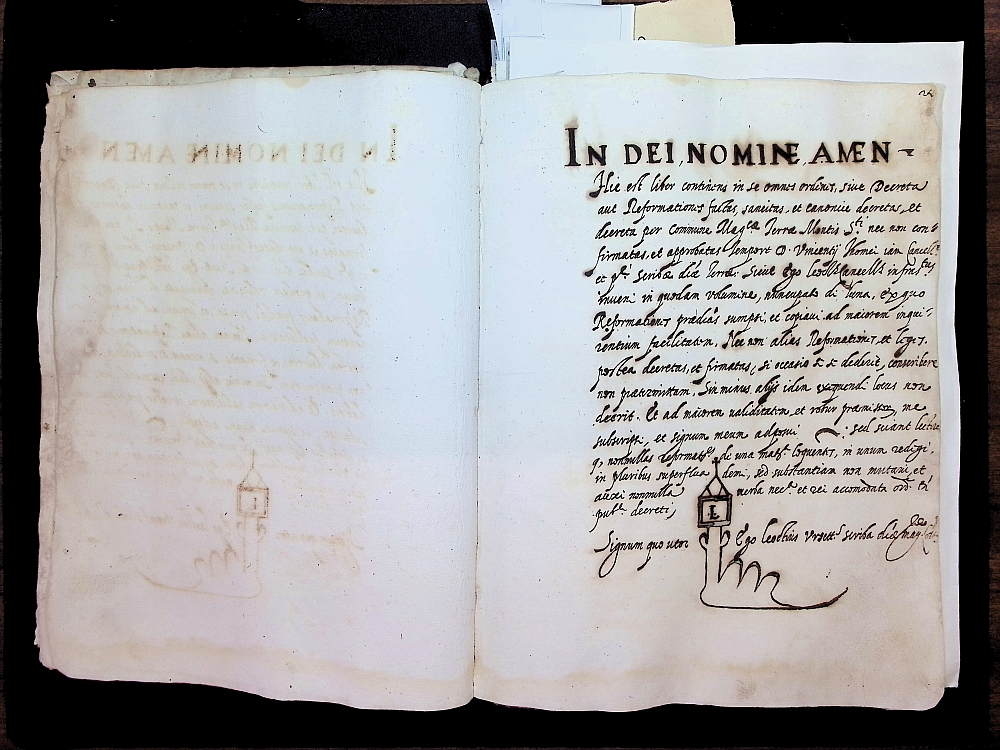 IN DEI, NOMINE, AMEN
Hic est liber continens in se omnes ordines, siue Decreta
aut Reformationes factas, sancitas, et canonice decretas, et
decreta per Commune Mag.cæ Terræ Montis S.ti nec non con-
firmatas, et approbatas tempore D. Vincentij Thomei iam Cancell.
et Scribæ dictæ Terræ. Siue Ego Cancell.s infras.tus
inueni in quodam volumine, nuncupato di luna, ex quo
Reformationes prædictas sumpsi, et copiaui ad maiorem inqui-
rentium facilitatem, Nec non alias Reformationes, et leges,
postea decretas, et firmatas, si occasio dederit, conscribere
non prætermittam, Sin minus alijs idem exequendi locus non
deerit. Et ad maiorem validitatem, et robur præmissor., me
subscripsi, et signum meum adposui : sed sciant lectores
q. nonnullas reformat.es de una mat.a loquentes, in unum redigi,
in pluribus superflua demi, sed substantiam non mutaui, et
auxi nonnulla verba nec.a et rei accomodata
pub.ci decreti,
L
Signum quo utor Ego scriba dictæ Mag.